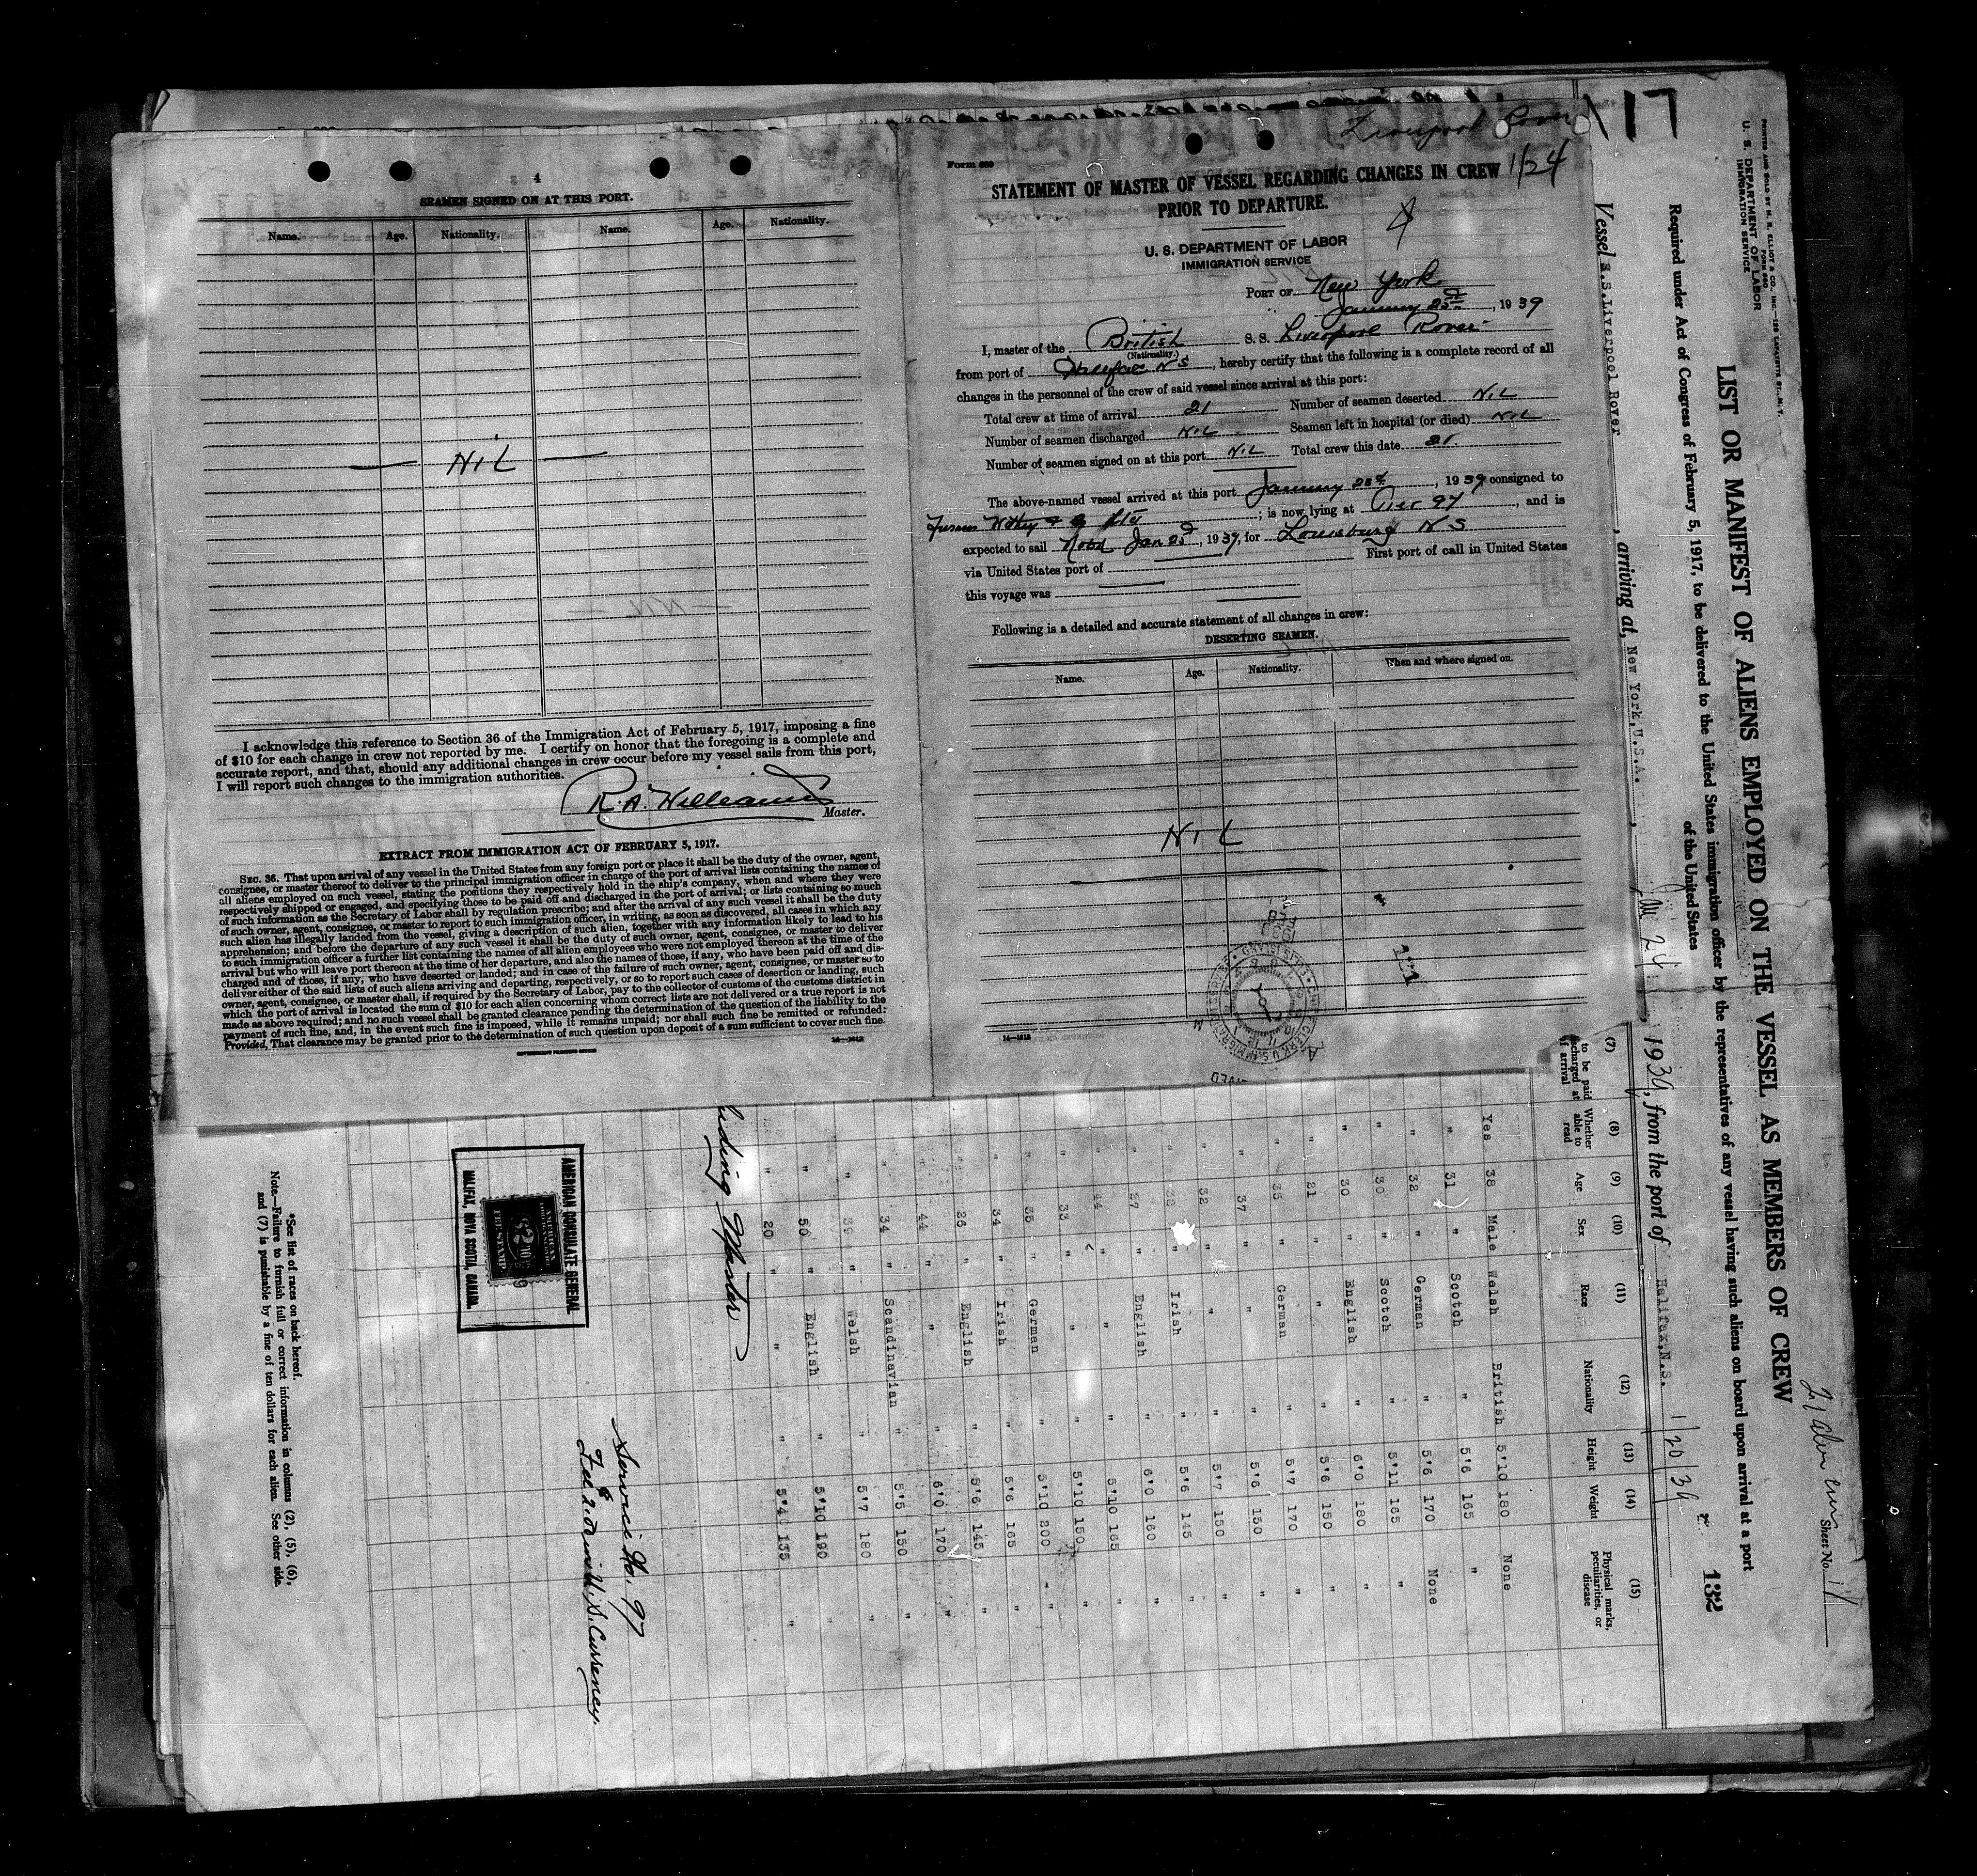 4
SEAMEN SIGNED ON AT THIS PORT.
Name. Age. Nationality. Name. Age. Nationality.
— NIL —
I acknowledge this reference to Section 36 of the Immigration Act of February 5, 1917, imposing a fine
of $10 for each change in crew not reported by me. I certify on honor that the foregoing is a complete and
accurate report, and that, should any additional changes in crew occur before my vessel sails from this port,
I will report such changes to the immigration authorities.
R. A. Williams
Master.
EXTRACT FROM IMMIGRATION ACT OF FEBRUARY 5, 1917.
SEC. 36. That upon arrival of any vessel in the United States from any foreign port or place it shall be the duty of the owner, agent,
consignee, or master thereof to deliver to the principal immigration officer in charge of the port of arrival lists containing the names of
all aliens employed on such vessel, stating the positions they respectively hold in the ship's company, when and where they were
respectively shipped or engaged, and specifying those to be paid off and discharged in the port of arrival; or lists containing so much
of such information as the Secretary of Labor shall by regulation prescribe; and after the arrival of any such vessel it shall be the duty
of such owner, agent, consignee, or master to report to such immigration officer, in writing, as soon as discovered, all cases in which any
such alien has illegally landed from the vessel, giving a description of such alien, together with any information likely to lead to his
apprehension; and before the departure of any such vessel it shall be the duty of such owner, agent, consignee, or master to deliver
to such immigration officer a further list containing the names of all alien employees who were not employed thereon at the time of the
arrival but who will leave port thereon at the time of her departure, and also the names of those, if any, who have been paid off and dis-
charged and of those, if any, who have deserted or landed; and in case of the failure of such owner, agent, consignee, or master so to
deliver either of the said lists of such aliens arriving and departing, respectively, or so to report such cases of desertion or landing, such
owner, agent, consignee, or master shall, if required by the Secretary of Labor, pay to the collector of customs of the customs district in
which the port of arrival is located the sum of $10 for each alien concerning whom correct lists are not delivered or a true report is not
made as above required; and no such vessel shall be granted clearance pending the determination of the question of the liability to the
payment of such fine, and, in the event such fine is imposed, while it remains unpaid; nor shall such fine be remitted or refunded:
Provided, That clearance may be granted prior to the determination of such question upon deposit of a sum sufficient to cover such fine.
GOVERNMENT PRINTING OFFICE
Liverpool Rover
1/24
Form 689
STATEMENT OF MASTER OF VESSEL REGARDING CHANGES IN CREW
PRIOR TO DEPARTURE.
U. S. DEPARTMENT OF LABOR
IMMIGRATION SERVICE
PORT OF New York
January 25th, 1939
I, master of the British S. S. Liverpool Rover
(Nationality.)
from port of Halifax N S, hereby certify that the following is a complete record of all
changes in the personnel of the crew of said vessel since arrival at this port:
Total crew at time of arrival 21 Number of seamen deserted NIL
Number of seamen discharged NIL Seamen left in hospital (or died) NIL
Number of seamen signed on at this port NIL Total crew this date 21.
The above-named vessel arrived at this port January, 1939 consigned to
Furness Withy & Co Ltd; is now lying at Pier 97, and is
expected to sail Jan 25, 1939, for Louisburg N S
via United States port of First port of call in United States
this voyage was
Following is a detailed and accurate statement of all changes in crew:
DESERTING SEAMEN.
Name. Age. Nationality. When and where signed on.
NIL
117
PRINTED AND SOLD BY H. R. ELLIOT & CO., INC.
U. S. DEPARTMENT OF LABOR
IMMIGRATION SERVICE
Sheet No. 1
LIST OR MANIFEST OF ALIENS EMPLOYED ON THE VESSEL AS MEMBERS OF CREW
132
Required under Act of Congress of February 5, 1917, to be delivered to the United States immigration officer by the representatives of any vessel having such aliens on board upon arrival at a port
of the United States
Vessel S.S.Liverpool Rover, arriving at, New York, U.S.A., Jan 24, 1939, from the port of Halifax, N.S. 1/20/39
(7) (8) (9) (10) (11) (12) (13) (14) (15)
to be paid
discharged at
of arrival
Whether able to read
Age
Sex
Race
Nationality
Height
Weight
Physical marks, peculiarities, or disease
Yes 38 Male Welsh British 5'10 180 None
" 31 " Scotch " 5'6 165 "
" 32 " German " 5'6 170 None
" 30 " Scotch " 5'11 165 "
" 30 " English " 6'0 180 "
" 21 " " " 5'6 150 "
" 35 " German " 5'7 170 "
" 37 " " " 5'6 150 "
" 32 " " " 5'7 150 "
" " Irish " 5'6 145 "
" 27 " English " 6'0 160 "
" 44 " " " 5'10 165 "
" 33 " " " 5'10 150 "
" 35 " German " 5'10 200 "
" 34 " Irish " 5'6 165 "
" 26 " English " 5'6 145 "
" 44 " " " 6'0 170 "
" 34 " Scandinavian " 5'5 150 "
" " Welsh " 5'7 180 "
" 50 " English " 5'10 190 "
" 20 " " " 5'4 135 "
uding Master
Service No. 97
Fee $2.00 in U. S. Currency.
AMERICAN CONSULATE GENERAL
AMERICAN
$2.00
FEE STAMP
HALIFAX, NOVA SCOTIA, CANADA.
*See list of races on back hereof.
Note.—Failure to furnish full or correct information in columns (2), (5), (6),
and (7) is punishable by a fine of ten dollars for each alien. See other side.